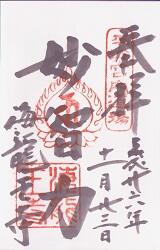 奉拝
平成廿六年
十一月廿三日
妙智力
海龍王寺